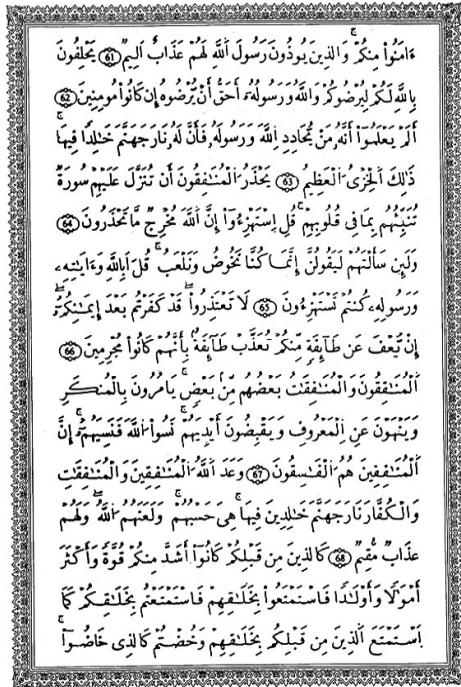 ءَامَنُواْ مِنكُمْ وَالذِينَ يُوذُونَ رَسُولَ اَللَّهِ لَهُمْ عَذَابٌ اَلِيمٌ 61 يَحْلِفُونَ
بِاللَّهِ لَكُمْ لِيُرْضُوكُمْ وَاللَّهُ وَرَسُولُهُۥ أَحَقُّ أَنْ يُّرْضُوهُ إِن كَانُواْ مُومِنِينَ 62
أَلَمْ يَعْلَمُواْ أَنَّهُۥ مَنْ يُّحَادِدِ اِللَّهَ وَرَسُولَهُۥ فَأَنَّ لَهُۥ نَارَ جَهَنَّمَ خَٰلِداً فِيهَا
ذَٰلِكَ اَلْخِزْيُ اُلْعَظِيمُ 63 يَحْذَرُ اُلْمُنَٰفِقُونَ أَن تُنَزَّلَ عَلَيْهِمْ سُورَةٌ
تُنَبِّئُهُم بِمَا فِي قُلُوبِهِمْ قُلِ اِسْتَهْزِءُوٓاْ إِنَّ اَللَّهَ مُخْرِجٌ مَّا تَحْذَرُونَ 64
وَلَئِن سَأَلْتَهُمْ لَيَقُولُنَّ إِنَّمَا كُنَّا نَخُوضُ وَنَلْعَبُ قُلَ اَبِاللَّهِ وَءَايَٰتِهِۦ
وَرَسُولِهِۦ كُنتُمْ تَسْتَهْزِءُونَ 65 لَا تَعْتَذِرُواْ قَدْ كَفَرْتُم بَعْدَ إِيمَٰنِكُمُۥٓ
إِنْ يُّعْفَ عَن طَآئِفَةٍ مِّنكُمْ تُعَذَّبْ طَآئِفَةٌۢ بِأَنَّهُمْ كَانُواْ مُجْرِمِينَ 66
اَلْمُنَٰفِقُونَ وَالْمُنَٰفِقَٰتُ بَعْضُهُم مِّنۢ بَعْضٍ يَامُرُونَ بِالْمُنكَرِ
وَيَنْهَوْنَ عَنِ اِلْمَعْرُوفِ وَيَقْبِضُونَ أَيْدِيَهُمْ نَسُواْ اُللَّهَ فَنَسِيَهُمُۥٓ إِنَّ
اَلْمُنَٰفِقِينَ هُمُ اُلْفَٰسِقُونَ 67 وَعَدَ اَللَّهُ اُلْمُنَٰفِقِينَ وَالْمُنَٰفِقَٰتِ
وَالْكُفَّارَ نَارَ جَهَنَّمَ خَٰلِدِينَ فِيهَا هِيَ حَسْبُهُمْ وَلَعَنَهُمُ اُللَّهُ وَلَهُمْ
عَذَابٌ مُّقِيمٌ 68 كَالذِينَ مِن قَبْلِكُمْ كَانُوٓاْ أَشَدَّ مِنكُمْ قُوَّةً وَأَكْثَرَ
أَمْوَٰلًا وَأَوْلَٰداً فَاسْتَمْتَعُواْ بِخَلَٰقِهِمْ فَاسْتَمْتَعْتُم بِخَلَٰقِكُمْ كَمَا
اَسْتَمْتَعَ اَلذِينَ مِن قَبْلِكُم بِخَلَٰقِهِمْ وَخُضْتُمْ كَالذِي خَاضُوٓاْ